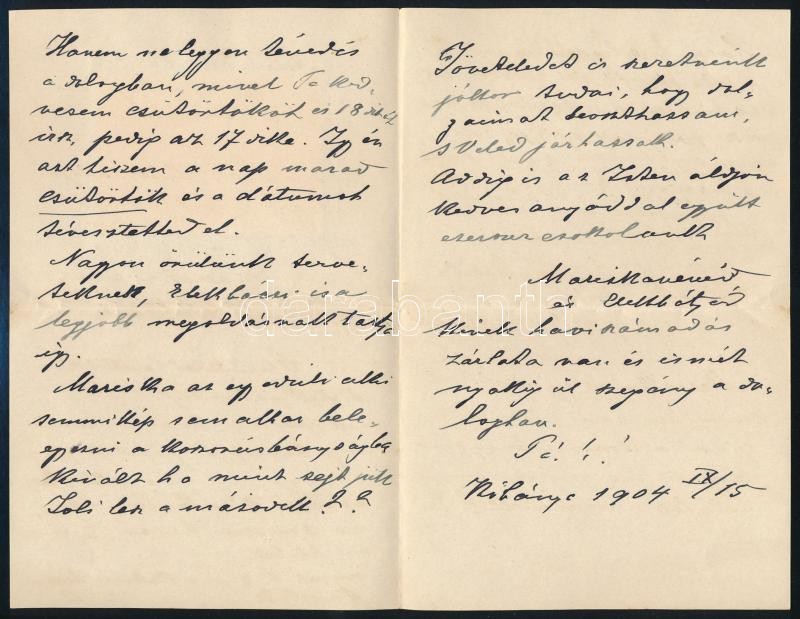 Hanem ne legyen tévedés
a dologban, mivel Te ked-
vesem csütörtököt és 18
írsz, pedig az 17 dike. Így én
azt hiszem a nap marad
csütörtök és a dátumot
tévesztetted el.
Nagyon örülünk terve-
teknek, Elek bácsi is a
legjobb megoldásnak tartja
így.
Mariska az egyedüli aki
semmikép sem akar bele-
egyezni a koszorúslányságba
kivált ha mint sejtjük
Joli lesz a második. ? ?
Jöveteledet is szeretnénk
jókor tudni, hogy dol-
gaimat beoszthassam,
s Veled járhassak.
Addig is az Isten áldjon
kedves anyáddal együtt
ezerszer csókolunk
Mariska nénéd
és Elek bátyád
kinek havi számadás
zárlata van és ismét
nyakig ül szegény a do-
logban.
Pá!!!
Kőbánya 1904 IX/15
darabanth